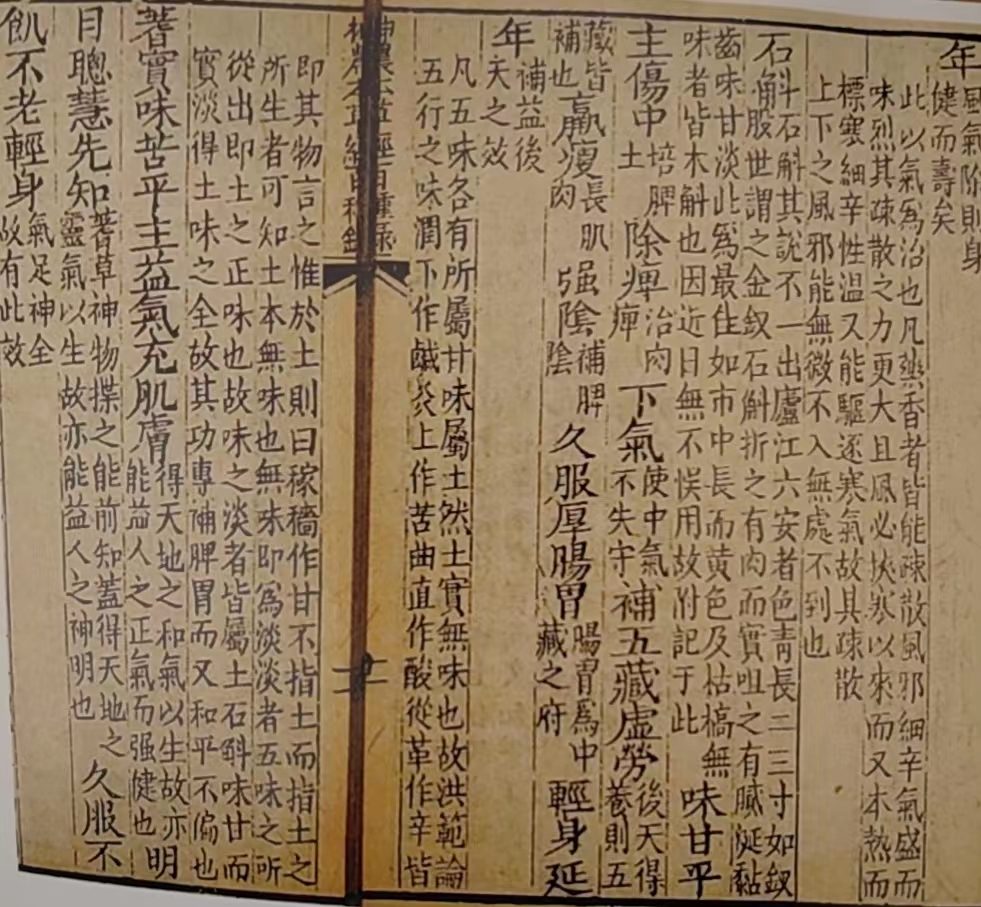 年風氣除則身健而壽矣
此以氣爲治也凡藥香者皆能疎散風邪細辛氣盛而
味烈其疎散之力更大且風必挾寒以來而又本熱而
標寒細辛性溫又能驅逐寒氣故其疎散
上下之風邪能無微不入無處不到也
石斛石斛其說不一出廬江六安者色青長二三寸如釵股世謂之金釵石斛折之有肉而實咀之有膩涎黏
齒味甘淡此爲最佳如市中長而黃色及枯槁無味者皆木斛也因近日無不悮用故附記于此味甘平
主傷中培脾土除痺治肉痺下氣使中氣不失守補五藏虛勞後天得養則五
藏皆補也羸瘦長肌肉强陰補脾陰久服厚腸胃腸胃爲中藏之府輕身延
年補益後天之效
凡五味各有所屬甘味屬土然土實無味也故洪範論
五行之味潤下作鹹炎上作苦曲直作酸從革作辛皆
神農本草經百種錄
即其物言之惟於土則曰稼穡作甘不指土而指土之
所生者可知土本無味也無味即爲淡淡者五味之所
從出即土之正味也故味之淡者皆屬土石斛味甘而
實淡得土味之全故其功專補脾胃而又和平不偏也
蓍實味苦平主益氣充肌膚得天地之和氣以生故亦能益人之正氣而强健也明
目聰慧先知蓍草神物揲之能前知蓋得天地之靈氣以生故亦能益人之神明也久服不
飢不老輕身氣足神全故有此效